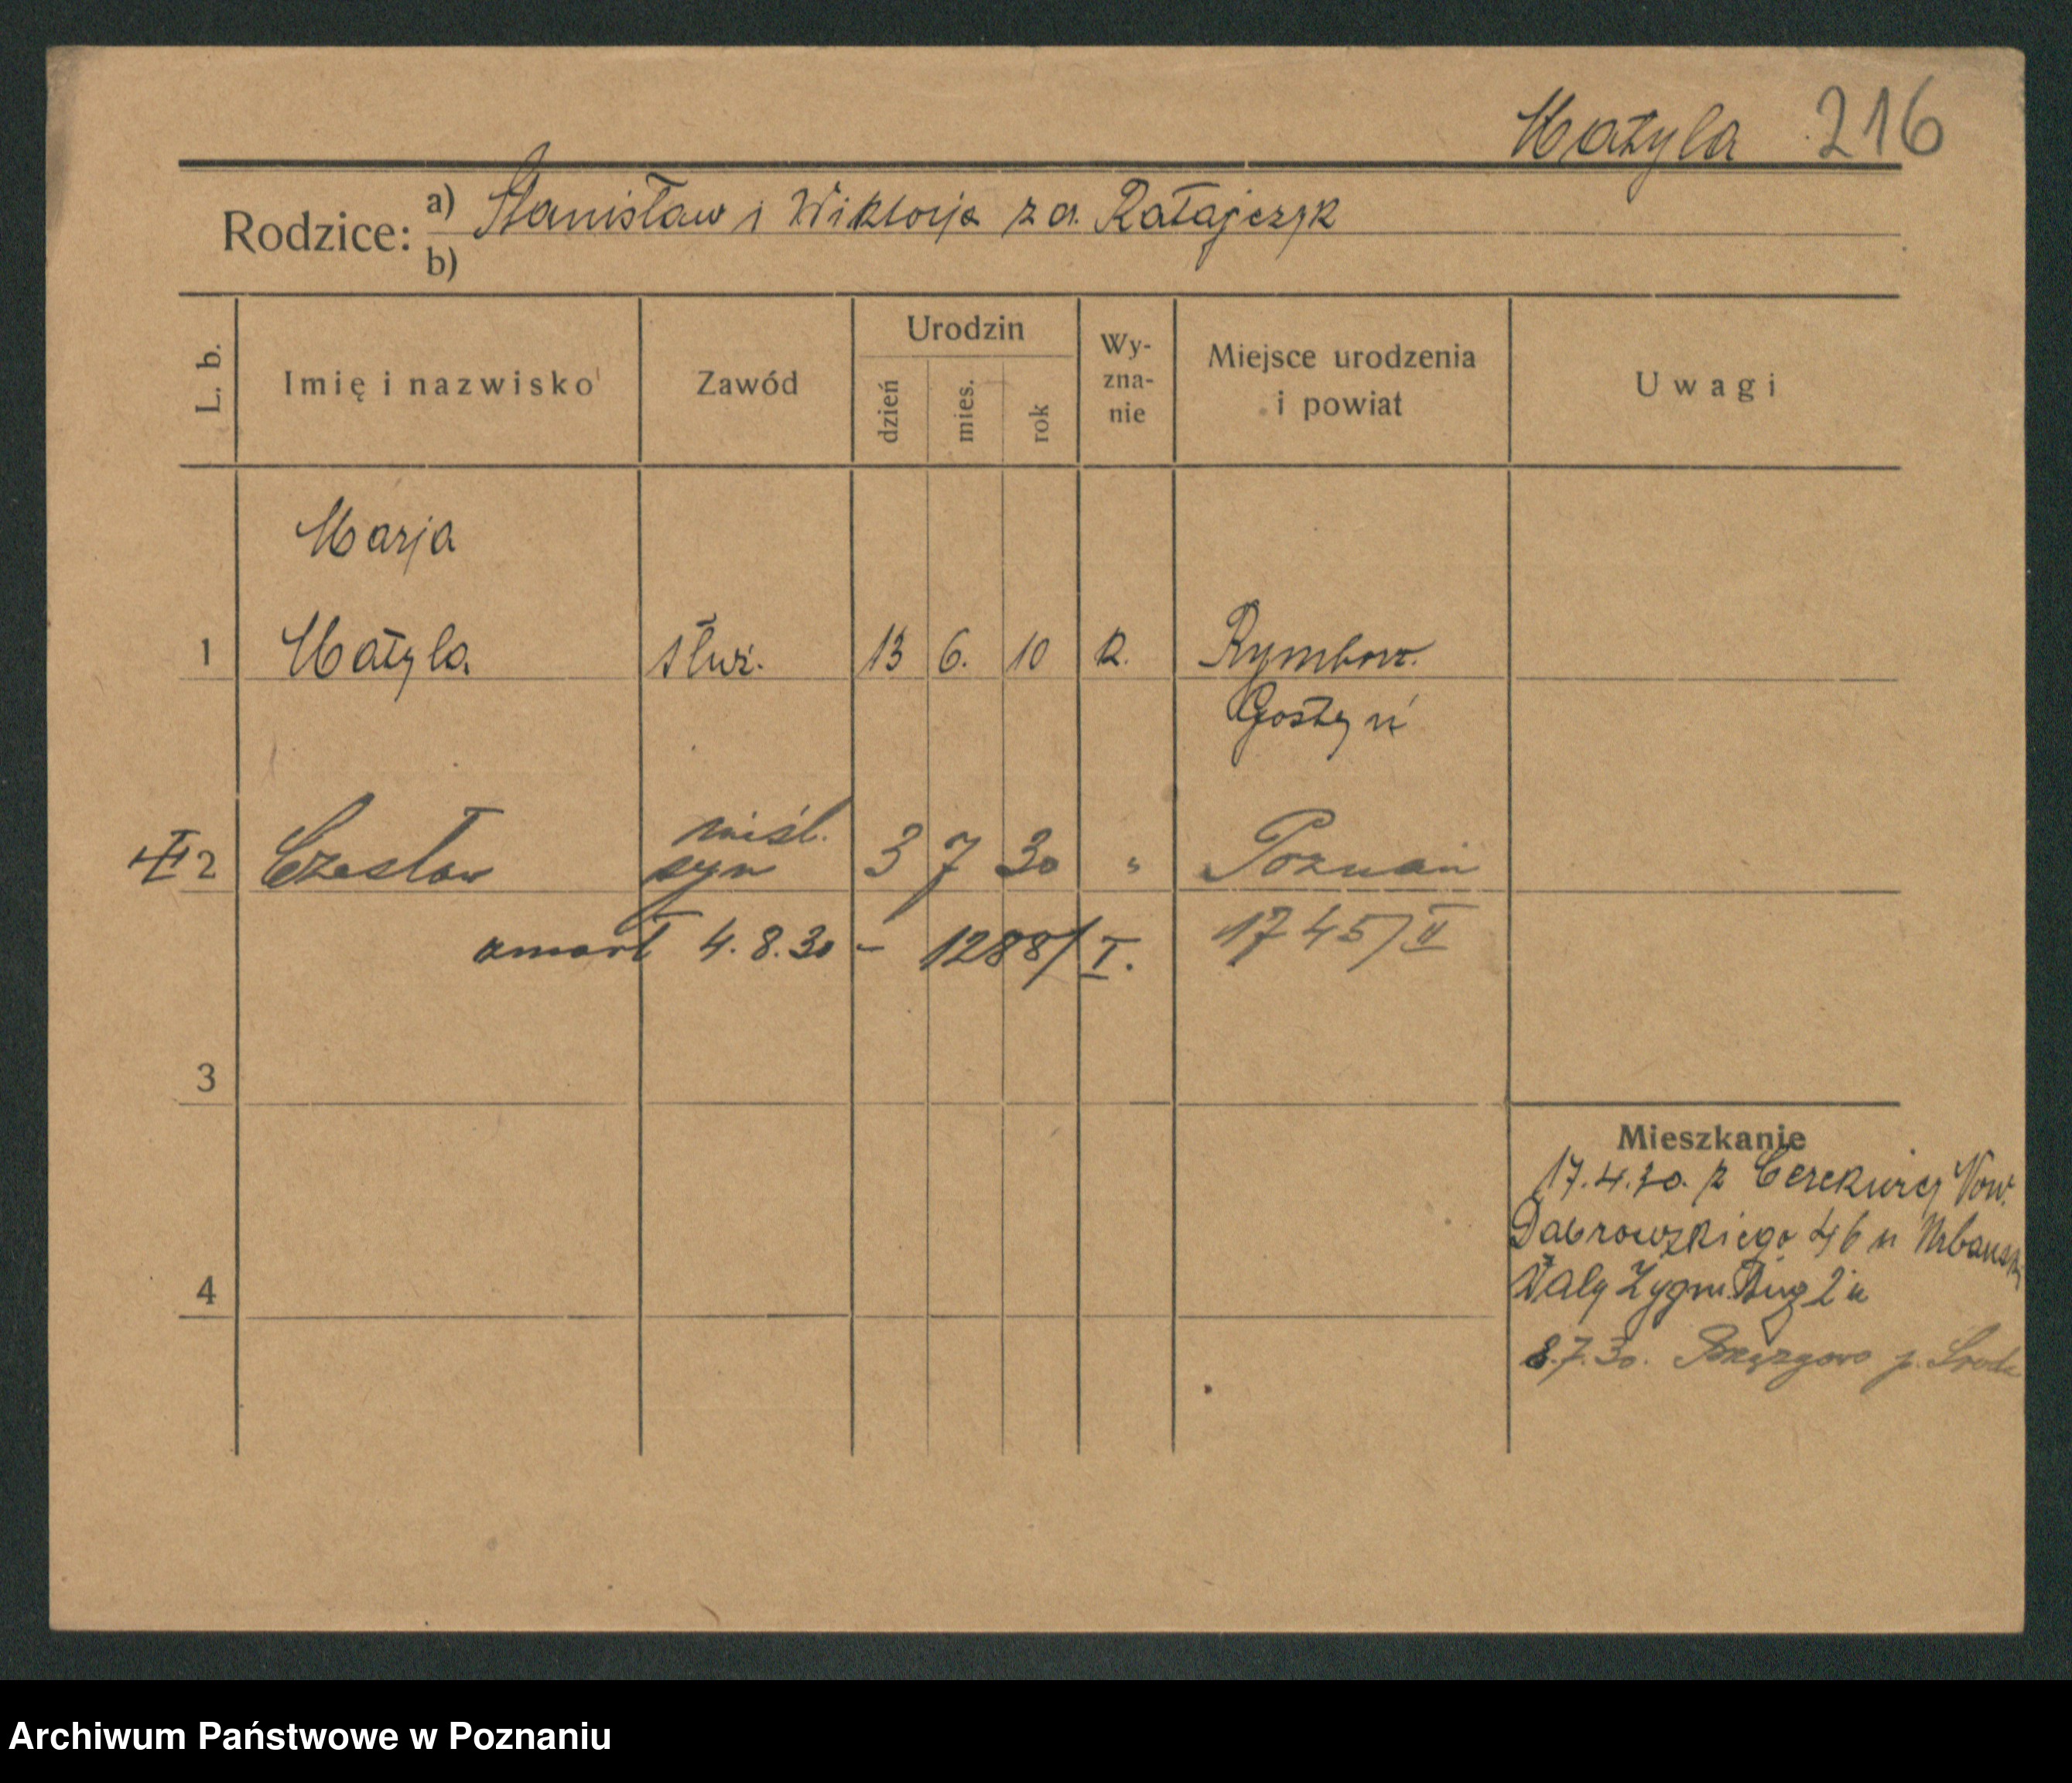 Matyla 216
Rodzice: a) Stanisław i Wiktorja z d. Ratajczyk
b)
L. b. Imię i nazwisko Zawód Urodzin dzień mies. rok Wy-zna-nie Miejsce urodzenia i powiat Uwagi
Marja
1 Matyla służ. 13 6. 10 k. Rymbow.
Gostyń
nieśl.
2 Czesław syn 3 7 30 " Poznań
zmarł 4.8.30 – 1288/I. 1745/II
3
Mieszkanie
17.4.30. z Cerekwicy Now.
Dabrowskiego 46 u
4 Wały Zygm. Aug 2 u
8.7.30. p. Środa
Archiwum Państwowe w Poznaniu